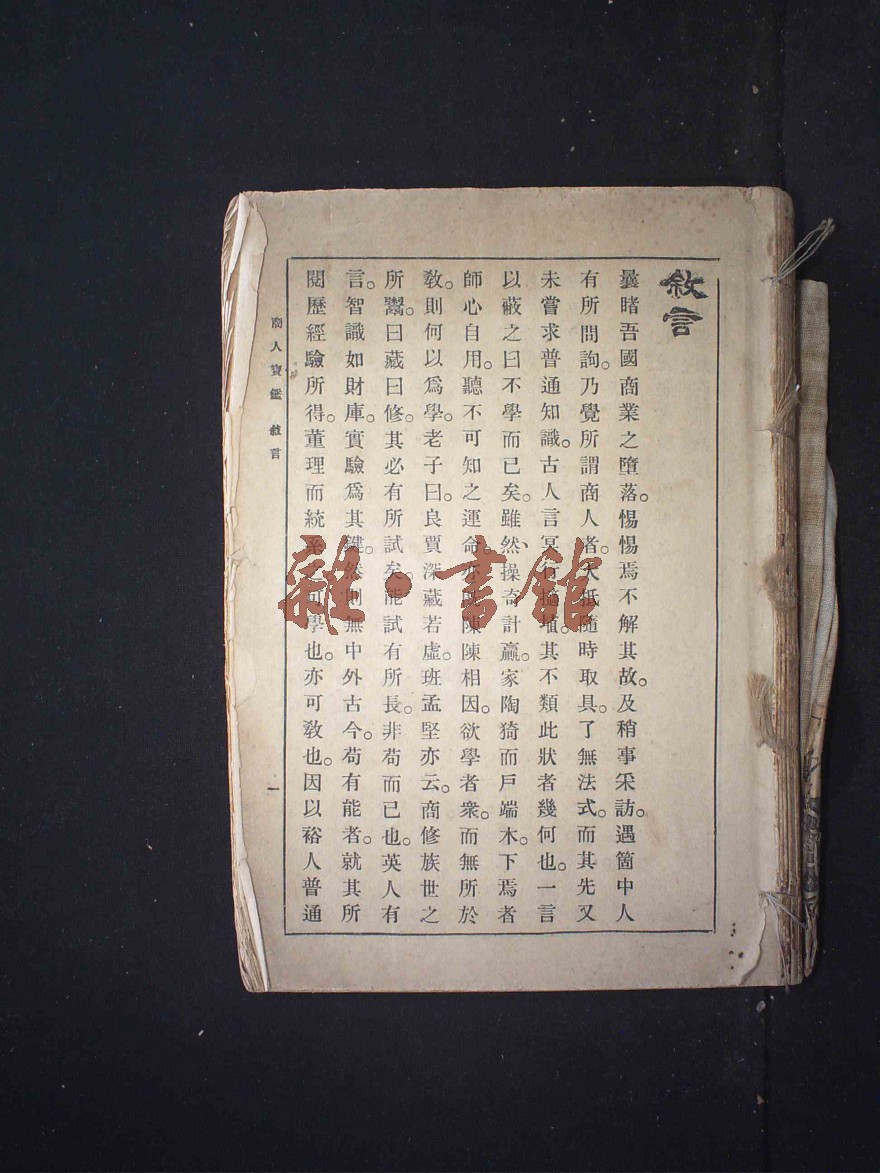 敘言
曩睹吾國商業之墮落。惕惕焉不解其故。及稍事采訪。遇箇中人
有所問詢。乃覺所謂商人者。大抵隨時取具。了無法式。而其先又
未嘗求普通知識。古人言冥行擿埴。其不類此狀者幾何也。一言
以蔽之曰不學而已矣。雖然、操奇計贏。家陶猗而戶端木。下焉者
師心自用。聽不可知之運命。亦既陳陳相因。欲學者衆。而無所於
敎。則何以爲學。老子曰。良賈深藏若虛。班孟堅亦云。商修族世之
所鬻。曰藏曰修。其必有所試矣。能試有所長。非苟而已也。英人有
言。智識如財庫。實驗爲其鍵。然則無中外古今。苟有能者。就其所
閱歷經驗所得。董理而統系之。可學也。亦可敎也。因以裕人普通
商人寶鑑 敘言 一
雜·書館